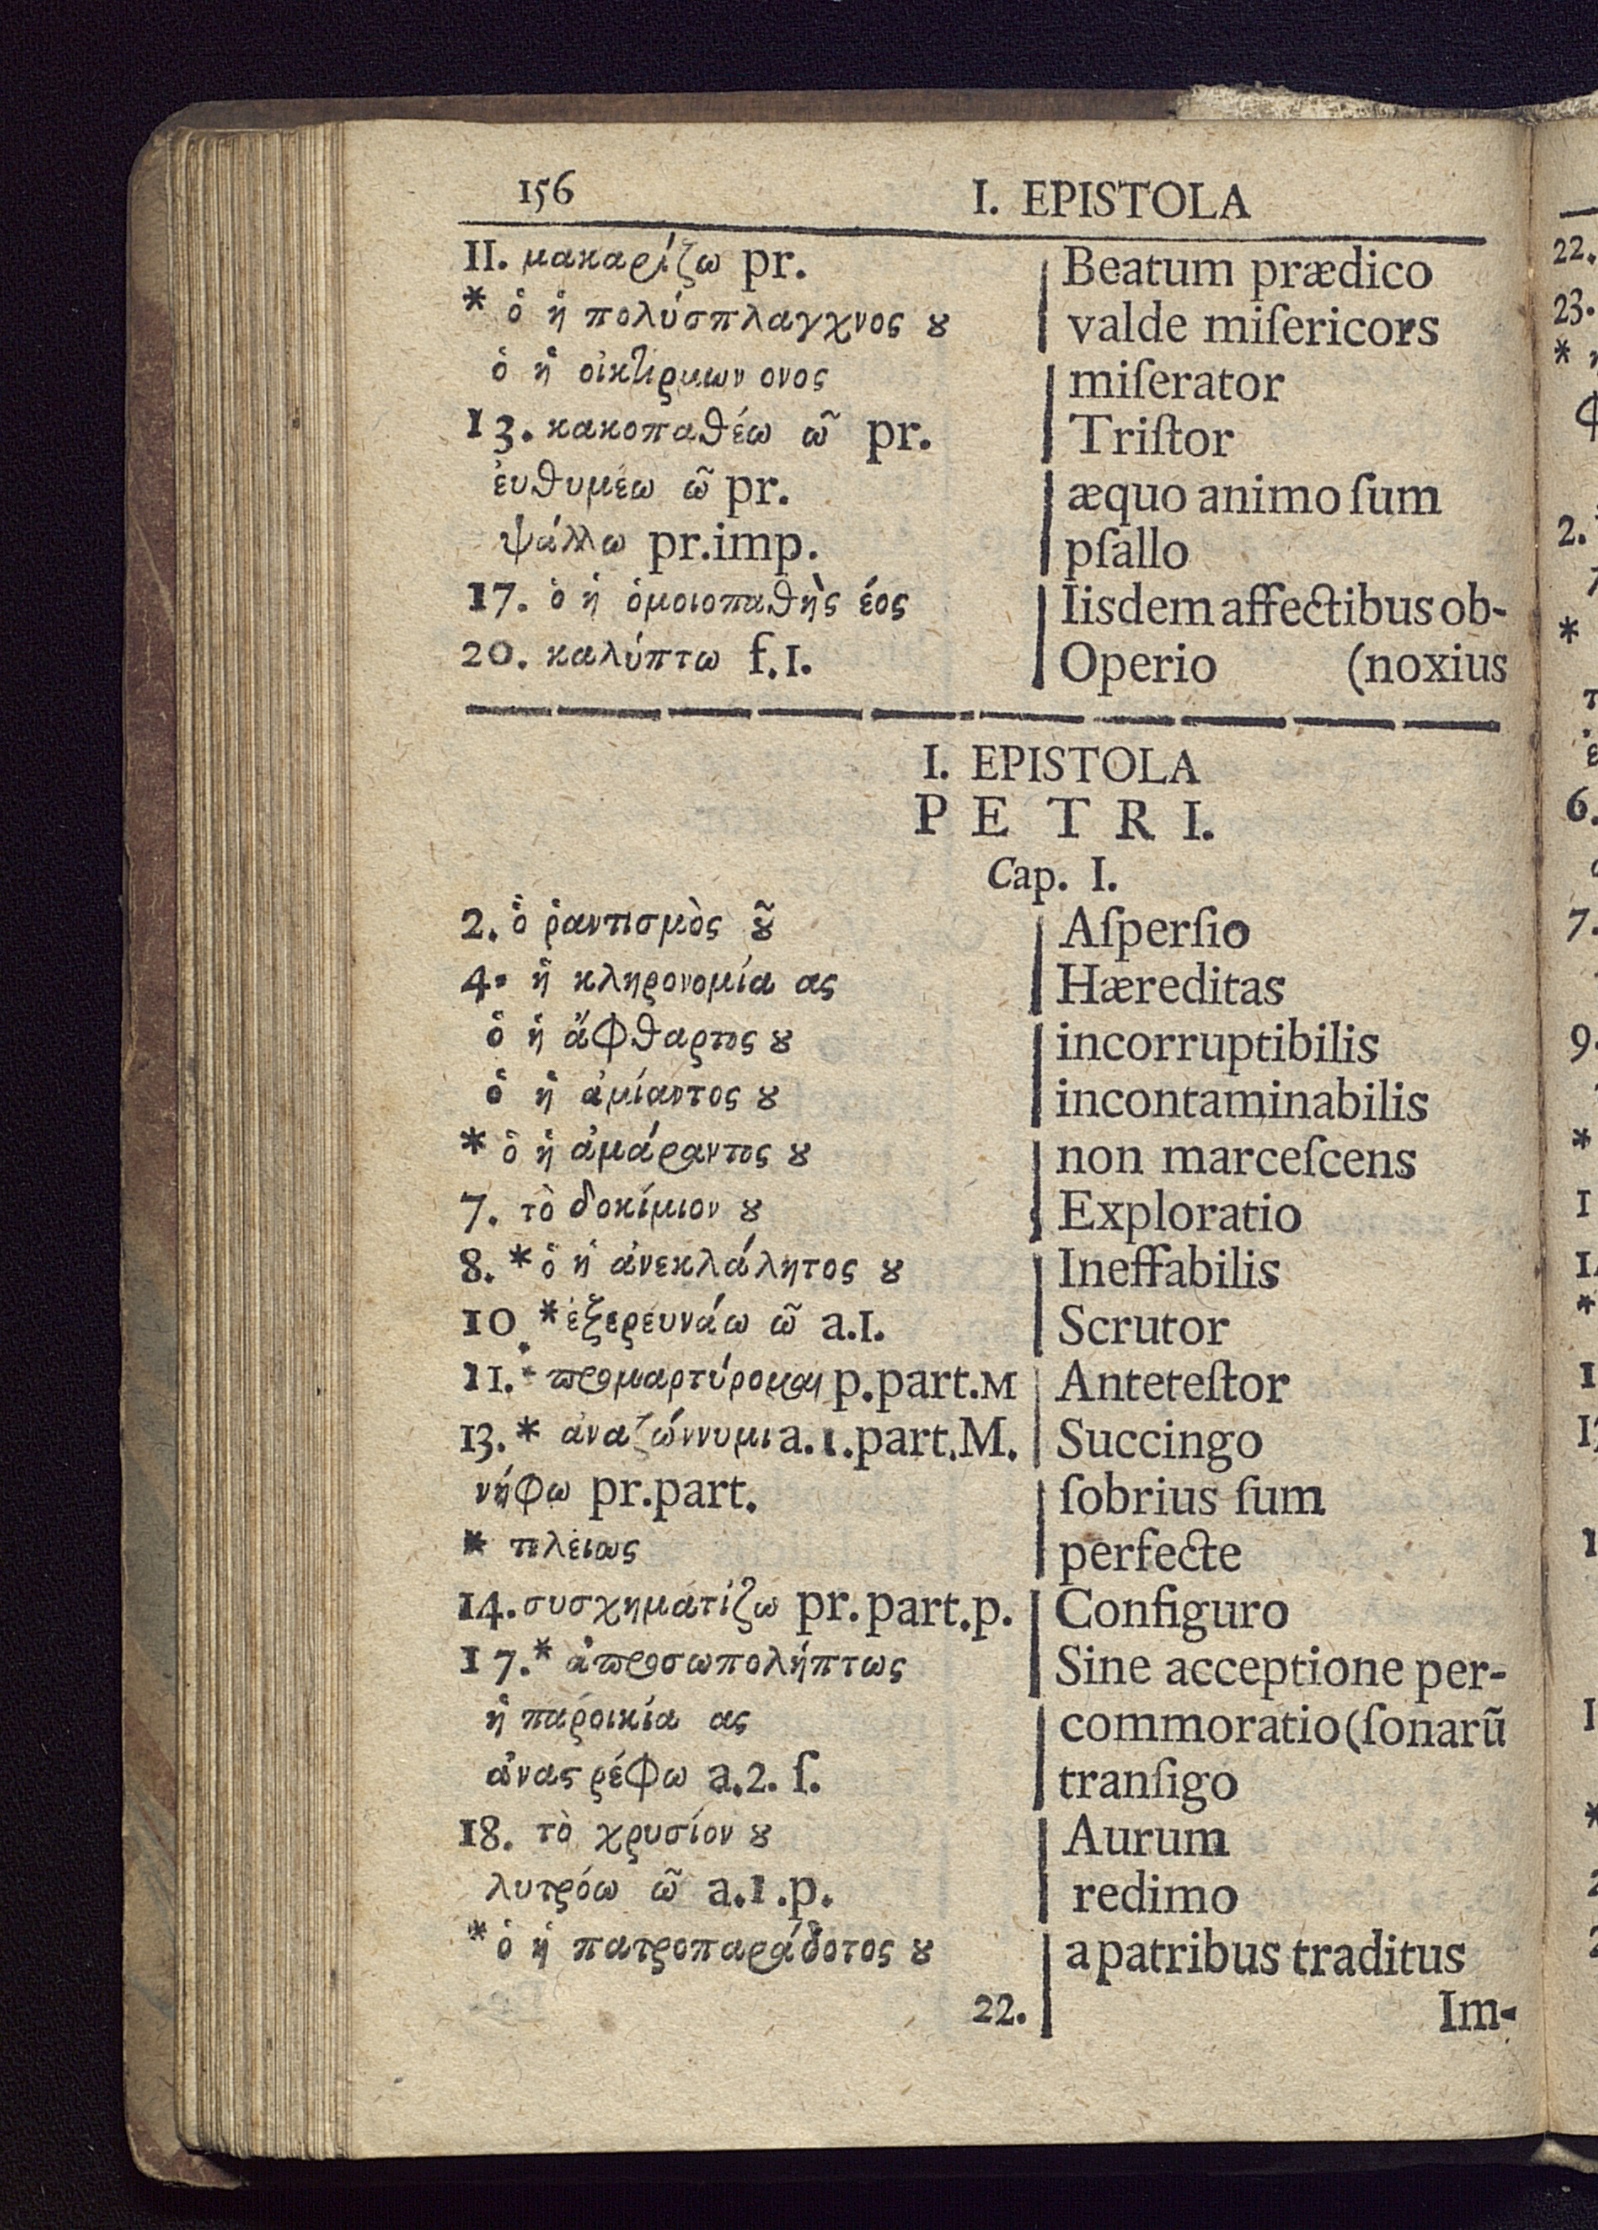 156 I. EPISTOLA
II. μακαρίζω pr. Beatum prædico
* ὁ ἡ πολύσπλαγχνος ȣ valde miſericors
ὁ ἡ οἰκτίρμων ονος miſerator
13. κακοπαθέω ῶ pr. Triſtor
ἐυθυμέω ῶ pr. æquo animo ſum
ψάλλω pr.imp. pſallo
17. ὁ ἡ ὁμοιοπαθὴς έος Iisdem affectibus ob-
20. καλύπτω f.I. Operio (noxius
I. EPISTOLA
PETRI.
Cap. I.
2. ὁ ῥαντισμὸς ȣ͂ Aſperſio
4. ἡ κληρονομία ας Hæreditas
ὁ ἡ ἄφθαρτος ȣ incorruptibilis
ὁ ἡ ἀμίαντος ȣ incontaminabilis
* ὁ ἡ ἀμάραντος ȣ non marceſcens
7. τὸ δοκίμιον ȣ Exploratio
8. * ὁ ἡ ἀνεκλάλητος ȣ Ineffabilis
10. * ἐξερευνάω ῶ a.I. Scrutor
11. * προμαρτύρομαι p.part.M Anteteſtor
13. * ἀναζώννυμι a.1.part.M. Succingo
νήφω pr.part. ſobrius ſum
* τελείως perfecte
14. συσχηματίζω pr.part.p. Configuro
17. * ἀπροσωπολήπτως Sine acceptione per-
ἡ παροικία ας commoratio (ſonarũ
ἀναϛρέφω a.2. ſ. tranſigo
18. τὸ χρυσίον ȣ Aurum
λυτρόω ῶ a.1.p. redimo
* ὁ ἡ πατροπαράδοτος ȣ a patribus traditus
22. Im-